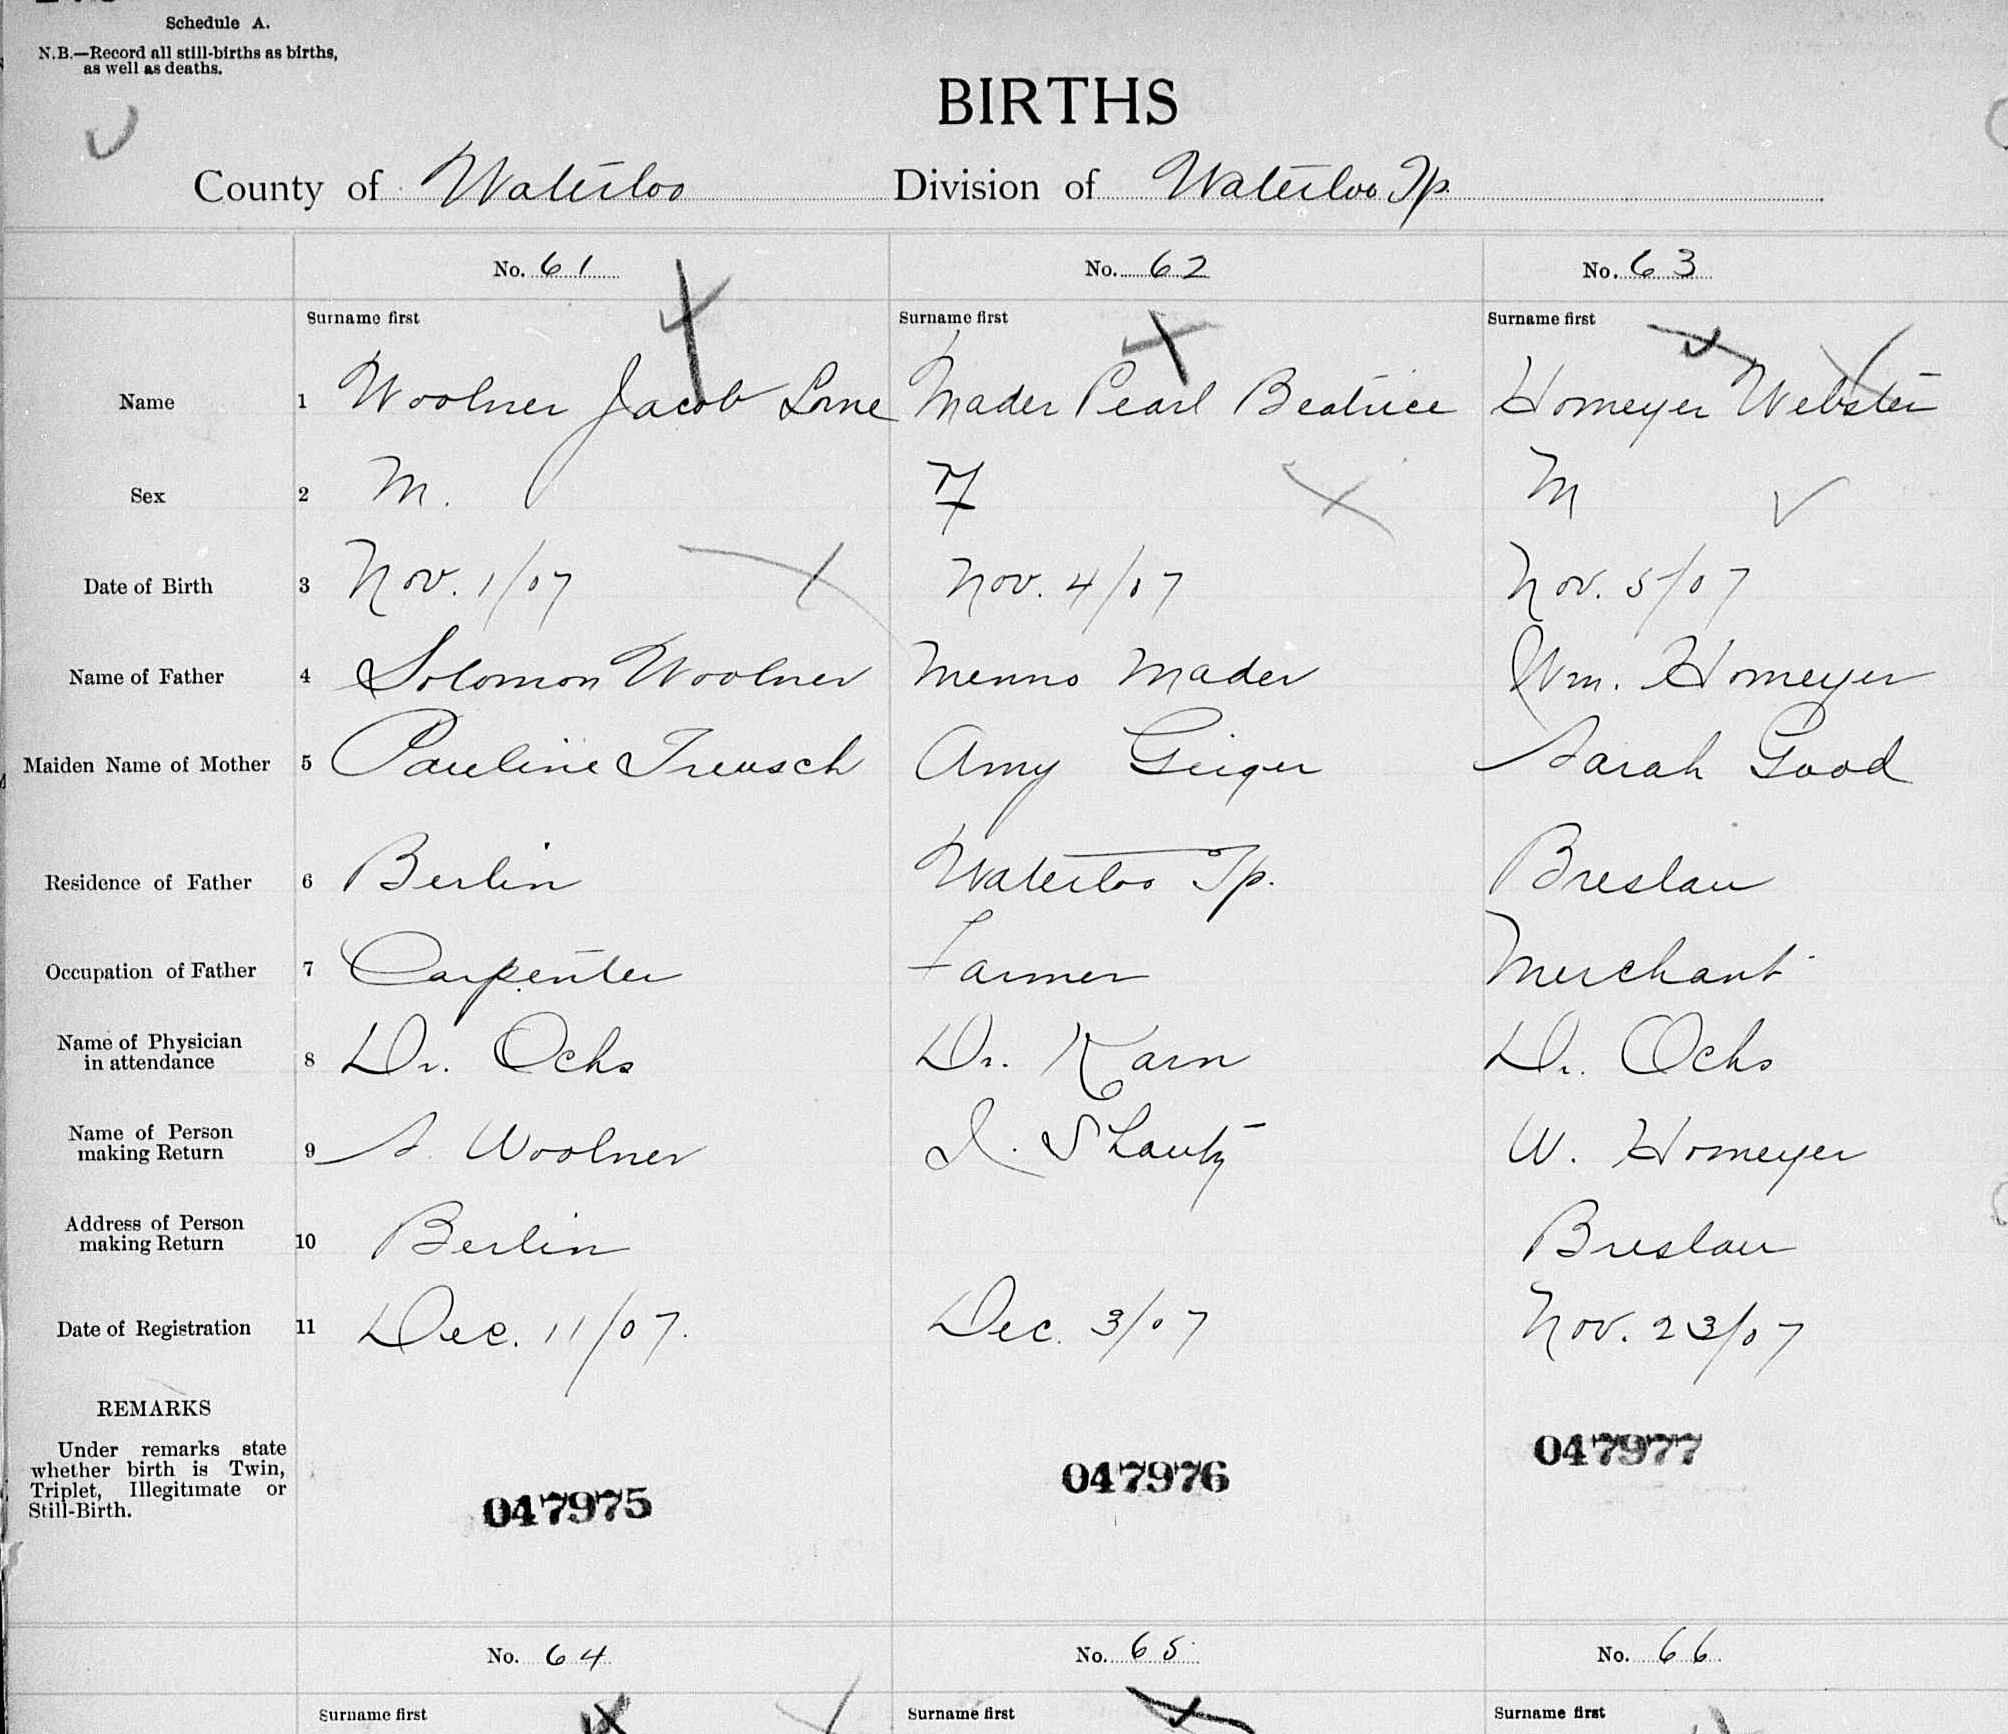 Schedule A.
N.B.—Record all still-births as births,
as well as deaths.
BIRTHS
County of Waterloo Division of Waterloo Tp.
No. 61 No. 62 No. 63
Surname first Surname first Surname first
Name 1 Woolner Jacob Lorne Mader Pearl Beatrice Homeyer Webster
Sex 2 M. F M
Date of Birth 3 Nov. 1/07 Nov. 4/07 Nov. 5/07
Name of Father 4 Solomon Woolner Menno Mader Wm. Homeyer
Maiden Name of Mother 5 Pauline Treusch Amy Geiger Sarah Good
Residence of Father 6 Berlin Waterloo Tp. Breslau
Occupation of Father 7 Carpenter Farmer Merchant
Name of Physician
in attendance 8 Dr. Ochs Dr. Karn Dr. Ochs
Name of Person
making Return 9 S. Woolner I. Shantz W. Homeyer
Address of Person
making Return 10 Berlin Breslau
Date of Registration 11 Dec. 11/07. Dec. 3/07 Nov. 23/07
REMARKS
Under remarks state
whether birth is Twin,
Triplet, Illegitimate or
Still-Birth.
047975 047976 047977
No. 64 No. 65 No. 66
Surname first Surname first Surname first